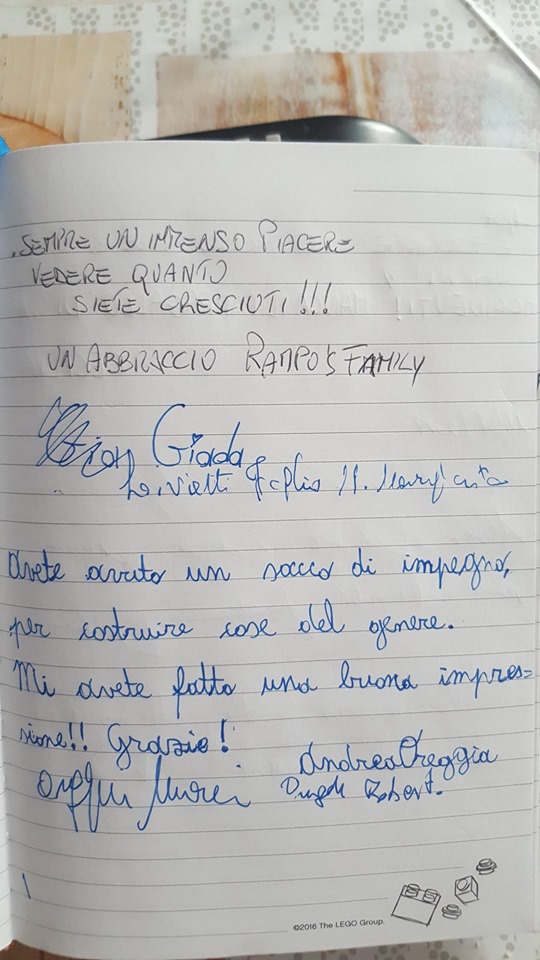 SEMPRE UN IMMENSO PIACERE
VEDERE QUANTO
SIETE CRESCIUTI!!!
UN ABBRACCIO RAMPO'S FAMILY
Giada
Avete avuto un sacco di impegno,
per costruire cose del genere.
Mi avete fatto una buona impres=
sione!! Grazie!
Andrea Oreggia
Robert.
©2016 The LEGO Group.